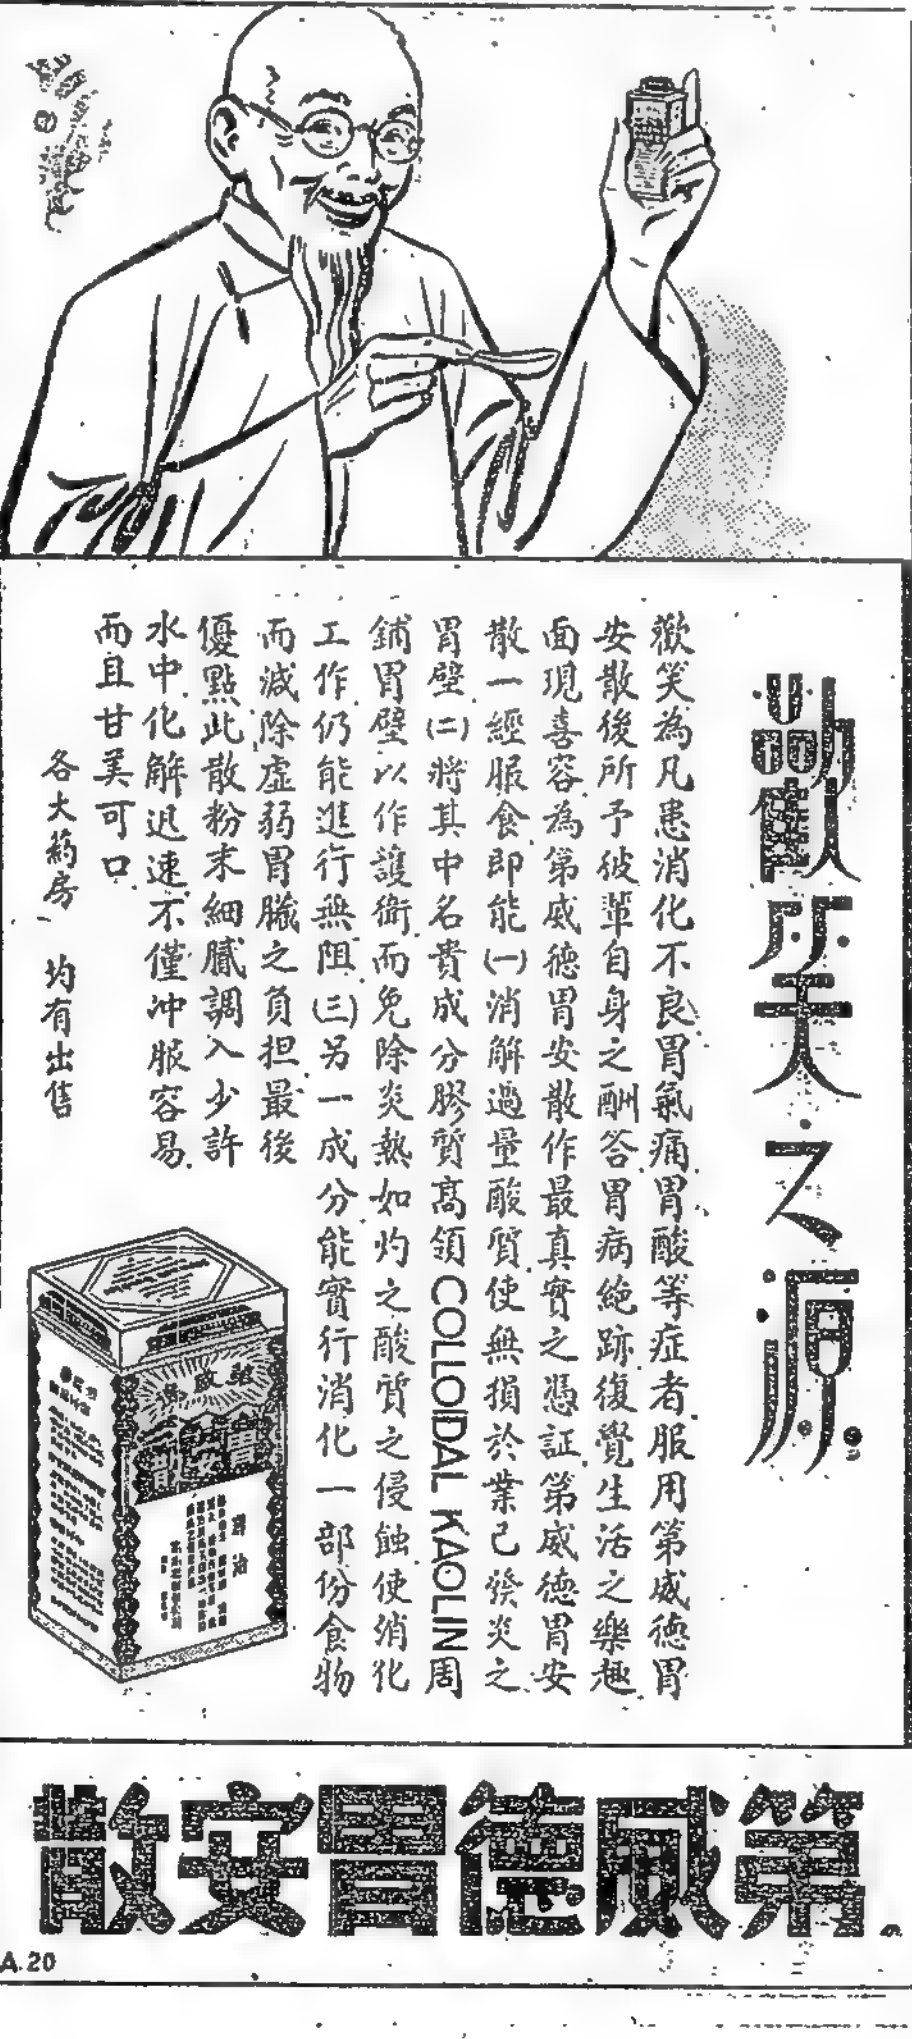 歡笑之源
歡笑為凡患消化不良胃氣痛胃酸等症者服用第威德胃
安散後所予彼輩自身之酬答胃病絶跡復覺生活之樂趣
面現喜容為第威德胃安散作最真實之憑証第威德胃安
散一經服食即能(一)消解過量酸質使無損於業已發炎之
胃壁(二)將其中名貴成分膠質高領COLLOIDAL KAOLIN周
鋪胃壁以作護衛而免除炎熱如灼之酸質之侵蝕使消化
工作仍能進行無阻(三)另一成分能實行消化一部份食物
而減除虛弱胃臟之負担最後
優點此散粉末細膩調入少許
水中化解迅速不僅冲服容易
而且甘美可口
各大葯房 均有出售
胃安散
第威德胃安散
A.20